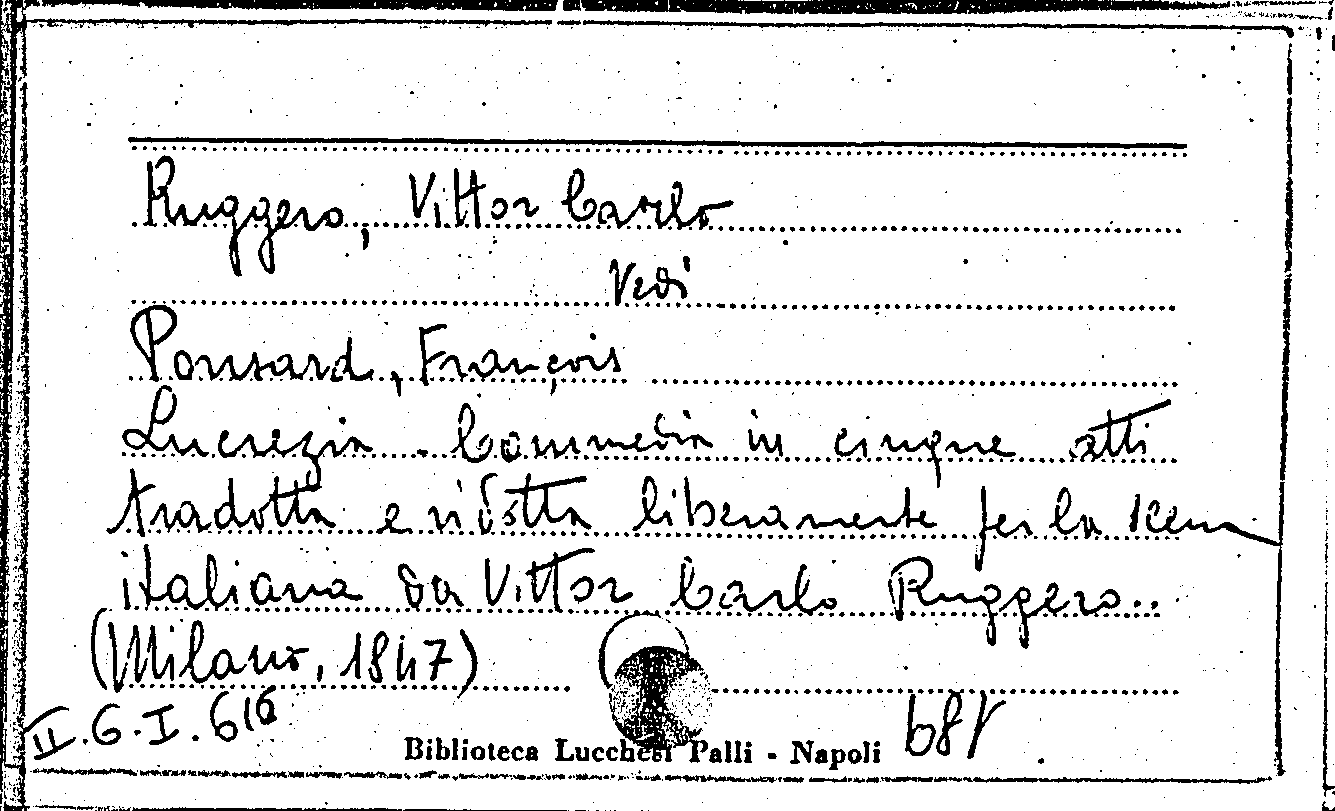 Ruggero, Vittor Carlo
Vedi
Ponsard, François
Lucrezia. Commedia in cinque atti
tradotta e ridotta liberamente per la scena
italiana da Vittor Carlo Ruggero..
(Milano, 1847)
II.6.I.6(6
Biblioteca Lucchesi Palli - Napoli